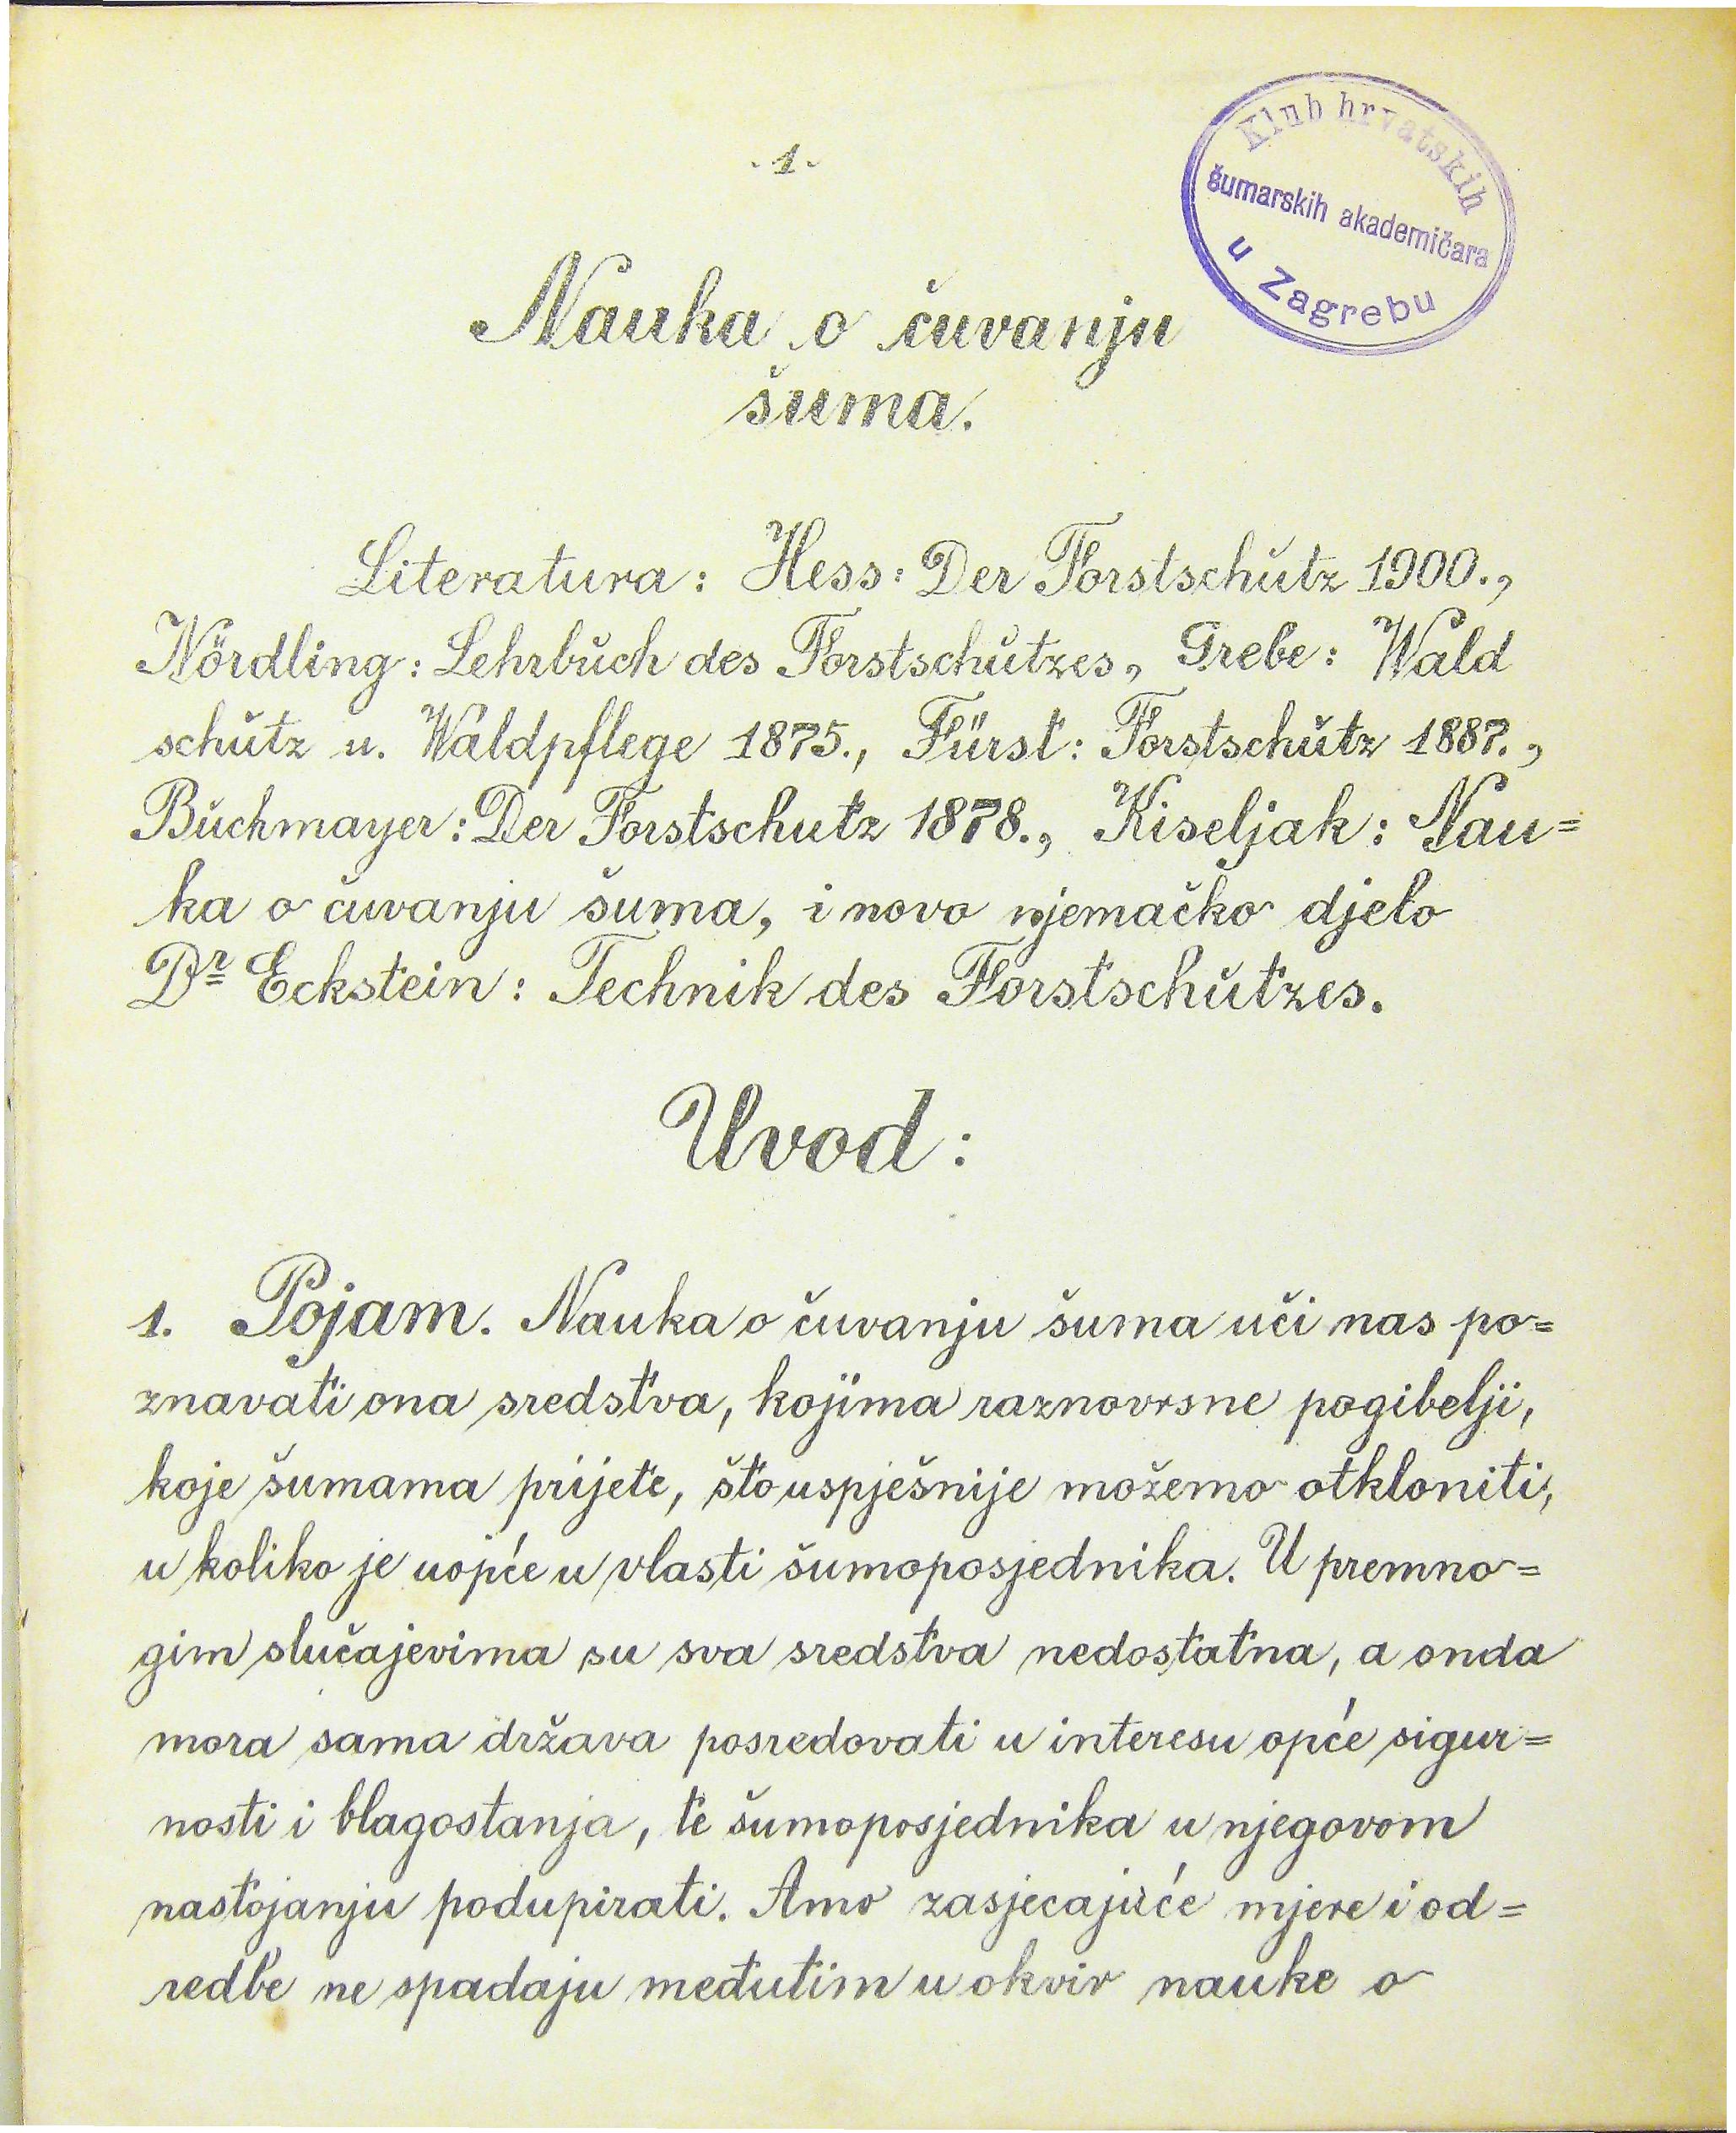 - 1 -
Klub hrvatskih
šumarskih akademičara
u Zagrebu
Nauka o čuvanju
šuma.
Literatura: Hess: Der Forstschŭtz 1900.,
Nördling: Lehrbŭch des Forstschŭtzes, Grebe: Wald
schŭtz u. Waldpflege 1875., Fürst: Forstschŭtz 1887.,
Bŭchmayer: Der Forstschutz 1878., Kiseljak: Nau=
ka o čuvanju šuma, i novo njemačko djelo
Dr Eckstein: Technik des Forstschŭtzes.
Uvod:
1. Pojam. Nauka o čuvanju šuma uči nas po=
znavati ona sredstva, kojima raznovrsne pogibelji,
koje šumama prijete, što uspješnije možemo otkloniti,
u koliko je uopće u vlasti šumoposjednika. U premno=
gim slučajevima su sva sredstva nedostatna, a onda
mora sama država posredovati u interesu opće sigur=
nosti i blagostanja, te šumoposjednika u njegovom
nastojanju podupirati. Amo zasjecajuće mjere i od=
redbe ne spadaju međutim u okvir nauke o